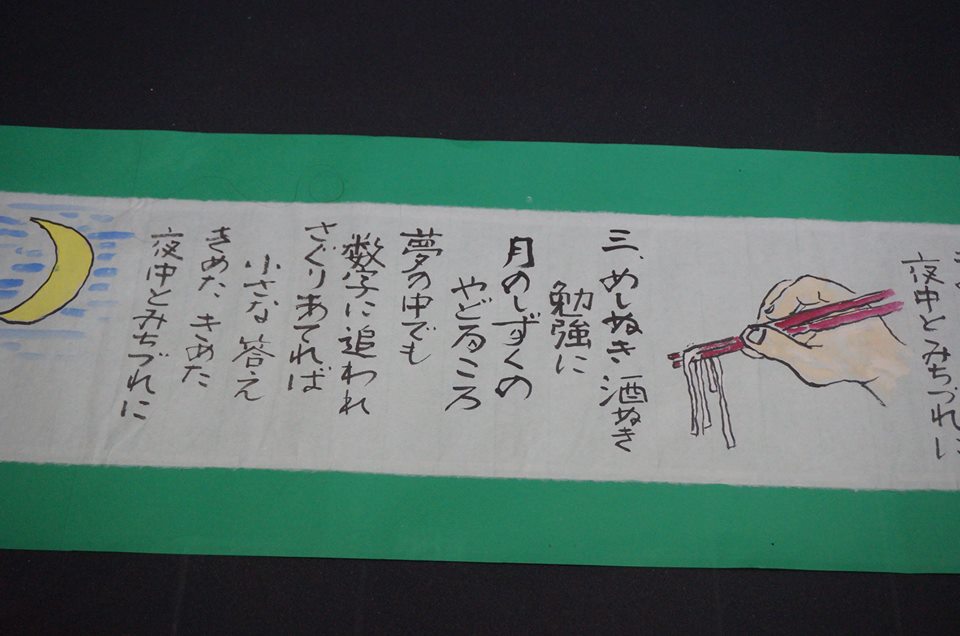 夜中とみちづれに
三、めしぬき 酒ぬき
勉強に
月のしずくの
やどるころ
夢の中でも
数字に追われ
さぐりあてれば
小さな答え
きめた きめた
夜中とみちづれに